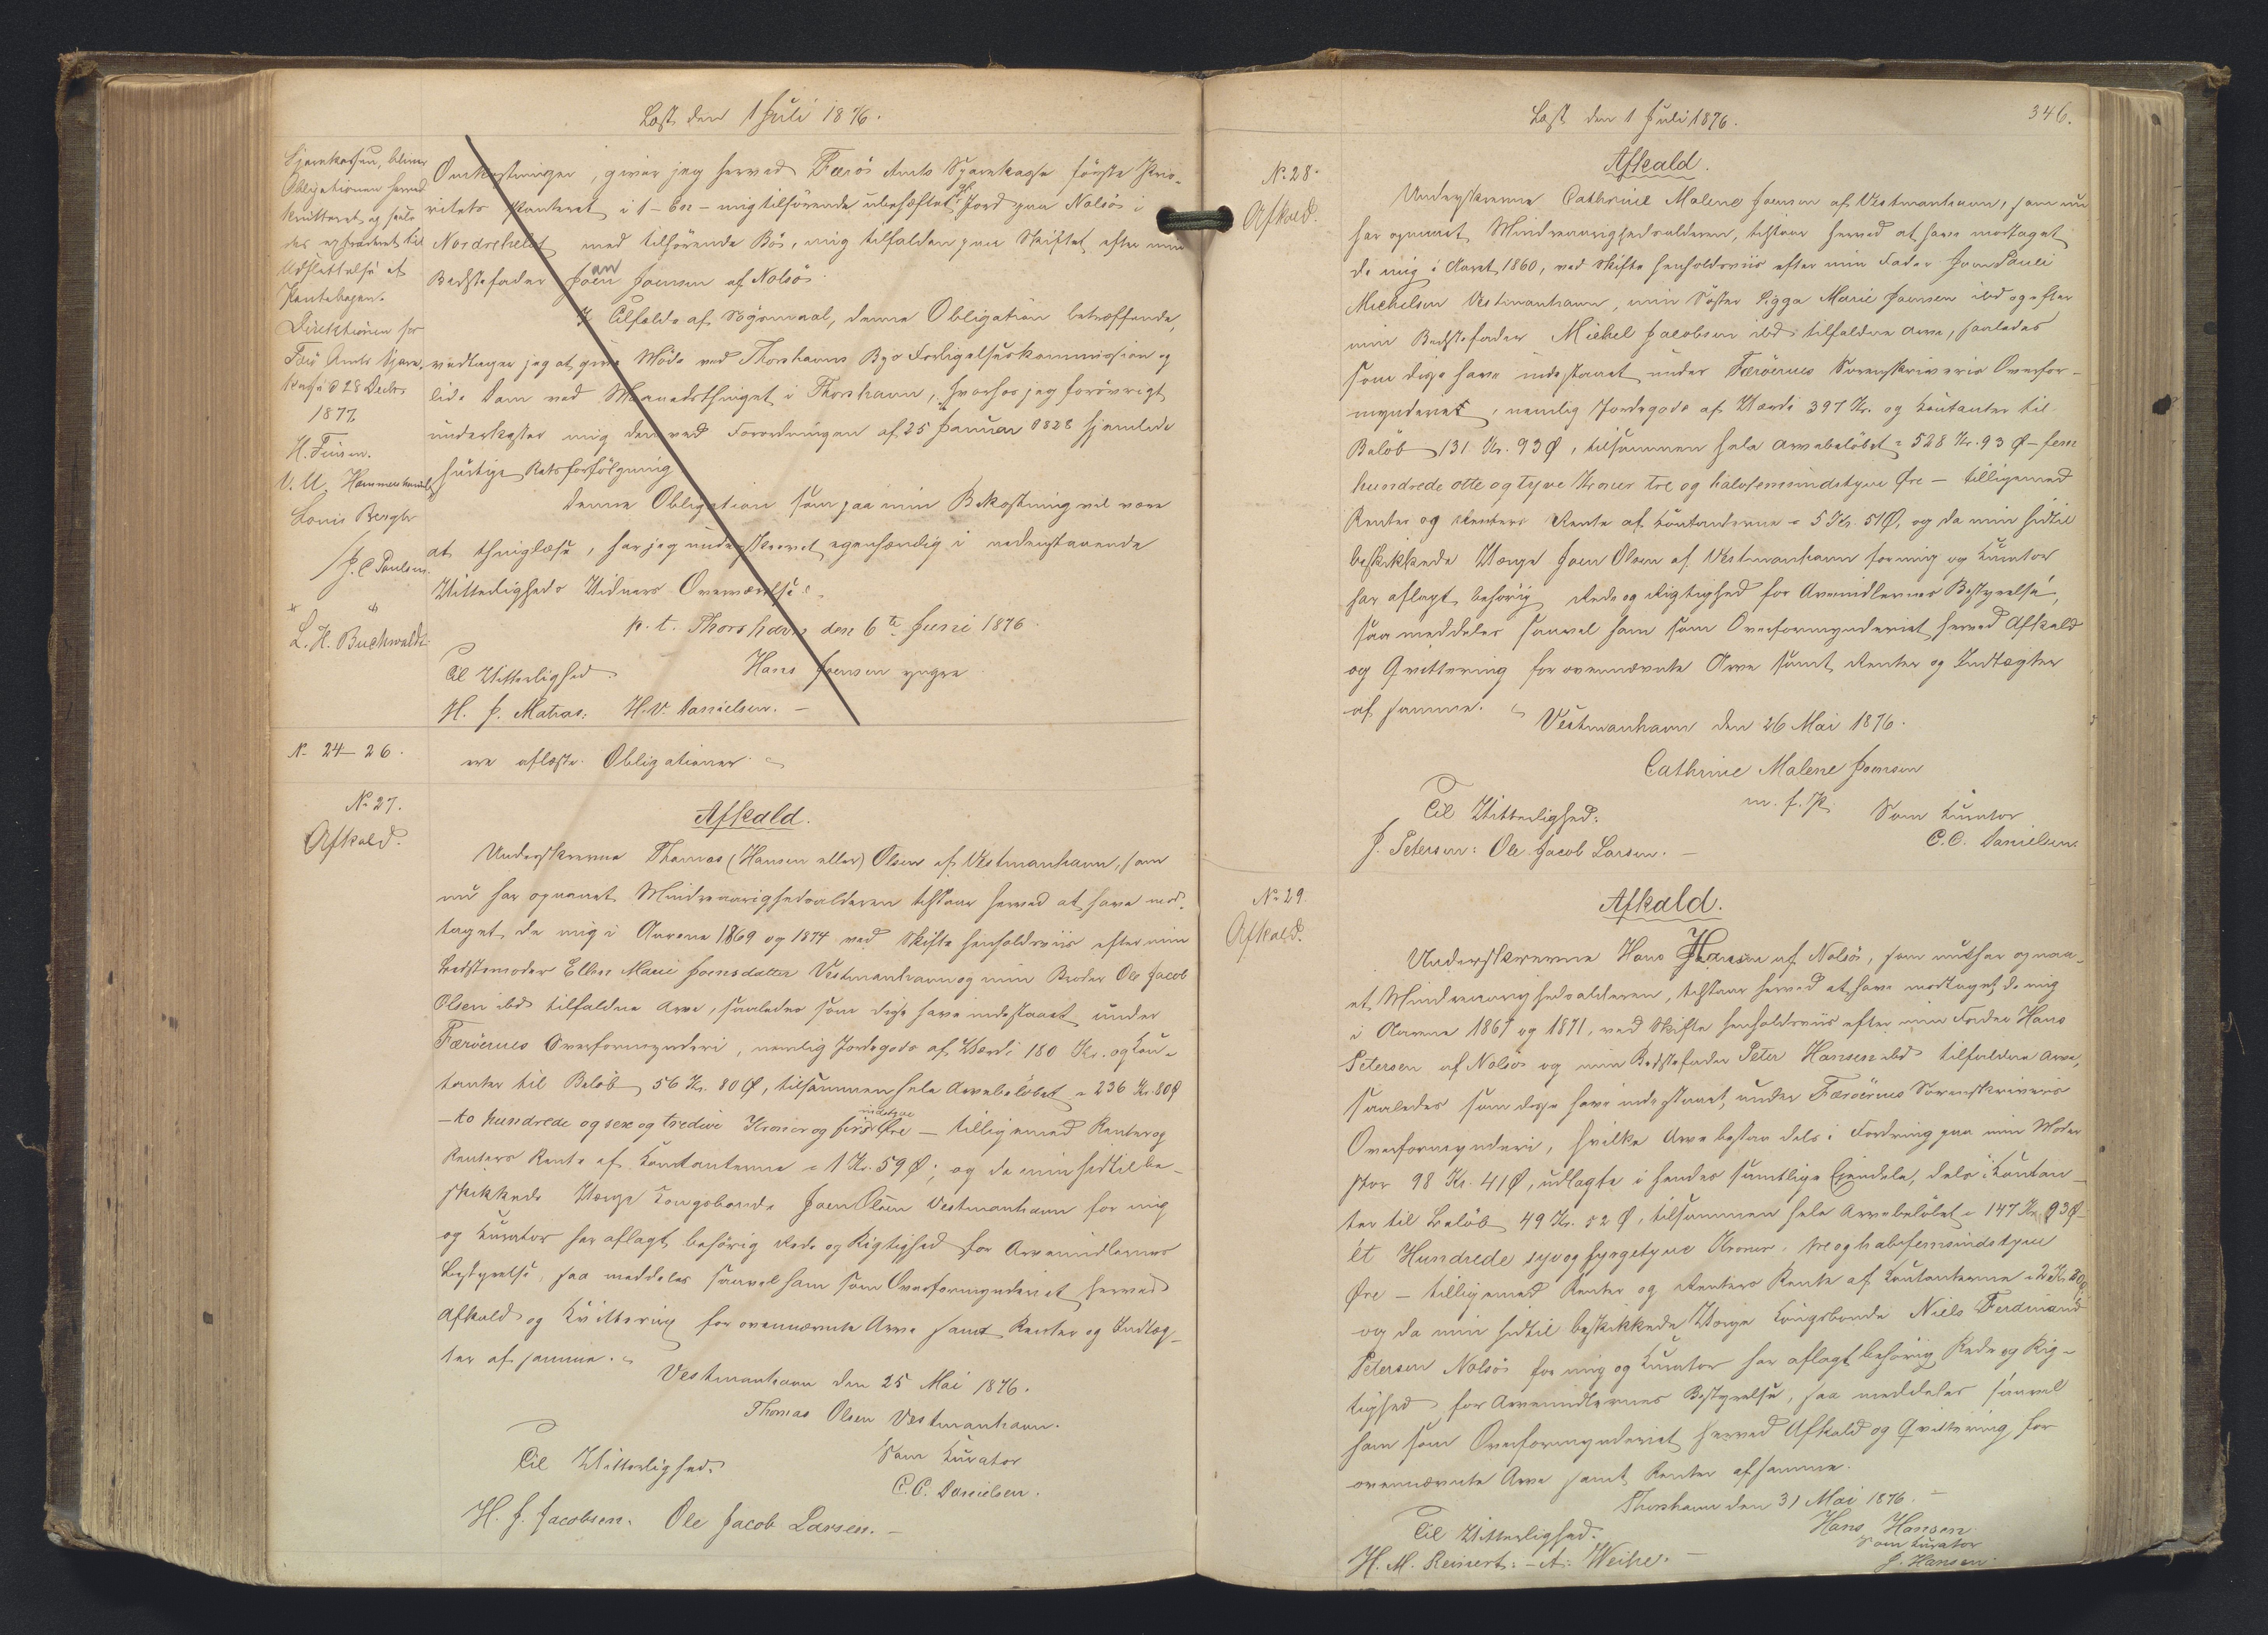 Læst den 1 Juli 1876.
Sparekassen, bliver
Obligationen herved
kvitteret og saale
des exstraderet til
Udslettelse af
Pantebogen.
Direktionen for
Færø Amts Spare-
kasse d 28 Decbr
1877.
H. Finsen.
V. U. Hammershaimb
Louis Bergh
/J. C. Poulsen.
L. H. Buchwaldt
Omkostninger, giver jeg herved Færø Amts Sparekasse første Prio-
ritets Panteret i 1 - een - mig tilhørende ubehæftet Gl. Jord paa Nolsø i
Nordrehelvt med tilhørende Bø, mig tilfalden paa Skiftet efter min
Bedstefader Joen Joensen af Nolsø
I Tilfælde af Søgsmaal, denne Obligation betræffende,
vedtager jeg at give Møde ved Thorshavns Byes Forligelseskommission og
lide Dom ved Maanedsthinget i Thorshavn, hvorhos jeg forøvrigt
underkaster mig den ved Forordningen af 25 Januar 1828 hjemlede
hurtige Retsforfølgning
Denne Obligation som paa min Bekostning vil være
at thinglæse, har jeg underskrevet egenhændig i nedenstaaende
Vitterligheds Vidners Overværelse.
p. t. Thorshavn den 6te Juni 1876.
Til Vitterlighed. Hans Joensen yngre
H. J. Matras: H. V. Danielsen. -
No 24-26. ere aflæste Obligationer
No 27.
Afkald.
Afkald.
Underskrevne Thomas (Hansen eller) Olsen af Vestmanhavn, som
nu har opnaaet Mindreaarighedsalderen tilstaar herved at have mod-
taget de mig i Aarene 1869 og 1874 ved Skifte henholdsviis efter min
Bedstemoder Ellen Marie Joensdatter Vestmanhavn og min Broder Ole Jacob
Olsen ibd tilfaldne Arve, saaledes som disse have indestaaet under
Færøernes Overformynderi, nemlig Jordegods af Værdi 180 Kr. og Kon-
tanter til Beløb 56 Kr. 80 Ø, tilsammen hele Arvebeløbet = 236 Kr. 80 Ø
- to hundrede og sex og tredive Kroner og firsindstyve Øre - tilligemed Renter og
Renters Rente af Kontanterne = 1 Kr. 59 Ø; og da min hidtil be-
skikkede Værge Kongsbonde Joen Olsen Vestmanhavn for mig
og Kurator har aflagt behørig Rede og Rigtighed for Arvemidlernes
Bestyrelse, saa meddeles saavel ham som Overformynderiet herved
Afkald og Kvittering for ovennævnte Arve samt Renter og Indtæg-
ter af samme.
Vestmanhavn den 25 Mai 1876.
Thomas Olsen Vestmanhavn.
Til Vitterlighed. Som Kurator
C. C. Danielsen.
H. J. Jacobsen. Ole Jacob Larsen. -
Læst den 1 Juli 1876. 346.
No 28.
Afkald.
Afkald.
Underskrevne Cathrine Malene Joensen af Vestmanhavn, som nu
har opnaaet Mindreaarighedsalderen, tilstaar herved at have modtaget
de mig i Aaret 1860, ved Skifte henholdsviis efter min Fader Joen Pauli
Michelsen Vestmanhavn, min Søster Sigga Marie Joensen ibd og efter
min Bedstefader Michel Jacobsen ibd tilfaldne Arve, saaledes
som disse have indestaaet under Færøernes Sorenskriveris Overfor-
mynderi, nemlig Jordegods af Værdi 397 Kr. og Kontanter til
Beløb 131 Kr. 93 Ø, tilsammen hele Arvebeløbet = 528 Kr. 93 Ø - fem
hundrede otte og tyve Kroner tre og halvfemsindstyve Øre - tilligemed
Renter og Renters Rente af Kontanterne = 5 Kr. 51 Ø, og da min hidtil
beskikkede Værge Joen Olsen af Vestmanhavn for mig og Kurator
har aflagt behørig Rede og Rigtighed for Arvemidlernes Bestyrelse,
saa meddeles saavel ham som Overformynderiet herved Afkald
og Qvittering for ovennævnte Arve samt Renter og Indtægter
af samme.
Vestmanhavn den 26 Mai 1876.
Cathrine Malene Joensen
m. f. P.
Til Vitterlighed. Som Kurator
J. Petersen: Ole Jacob Larsen. - C. C. Danielsen.
No 29.
Afkald.
Afkald.
Underskrevne Hans Hansen af Nolsø, som nu har opnaa-
et Mindreaarighedsalderen, tilstaar herved at have modtaget de mig
i Aarene 1867 og 1871, ved Skifte henholdsviis efter min Fader Hans
Petersen af Nolsø og min Bedstefader Peter Hansen ibd tilfaldne Arve,
saaledes som disse have indestaaet under Færøernes Sorenskriveris
Overformynderi, hvilke Arve bestaa dels i Fordring paa min Moder
stor 98 Kr. 41 Ø, udlagte i hendes samtlige Ejendele, dels i Kontan-
ter til Beløb 49 Kr. 52 Ø, tilsammen hele Arvebeløbet = 147 Kr. 93 Ø -
ét Hundrede syv og fyrgetyve Kroner, tre og halvfemsindstyve
Øre - tilligemed Renter og Renters Rente af Kontanterne = 2 Kr.
og da min hidtil beskikkede Værge Kongsbonde Niels Ferdinand
Petersen Nolsø for mig og Kurator har aflagt behørig Rede og Rig-
tighed for Arvemidlernes Bestyrelse, saa meddeles saavel
ham som Overformynderiet herved Afkald og Qvittering for
ovennævnte Arve samt Renter af samme.
Thorshavn den 31 Mai 1876. -
Til Vitterlighed. Hans Hansen
Som Kurator
H. M. Reinert: - A. Weihe. - J. Hansen.